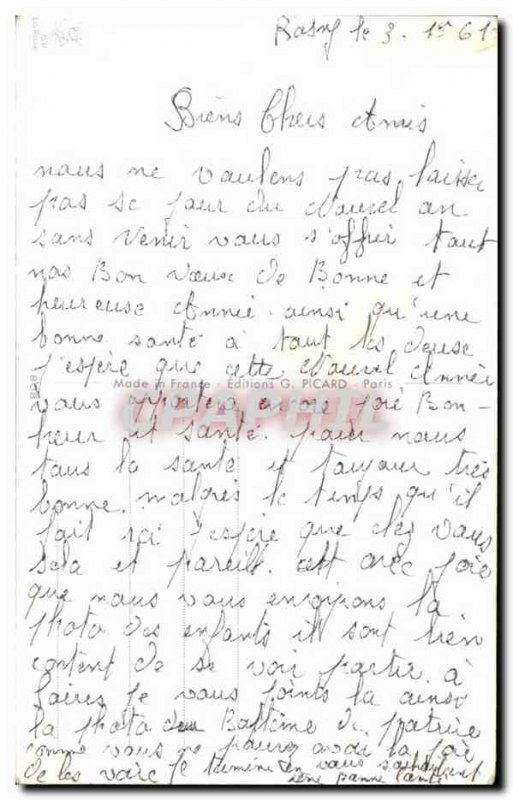 le 3. 1er 61
Biens Chers Amis
nous ne voulons pas laisser
pas se jour du Nouvel an
sans venir vous s'offrir tout
nos Bon vœux de Bonne et
heureuse Année. ainsi qu'une
bonne santé à tout les deux
j'espère que cette Nouvel Année
Made in France - Éditions G. PICARD - Paris
vous apportera comme joie Bon-
heur et santé. pour nous
tous la santé et toujour très
bonne. malgrès le temps qu'il
fait ici j'espère que chez vous
sela et pareill. c'ett avec joie
que nous vous envoiyons la
photo des enfants ils sont bien
content de se voir partir. à
faires je vous joints la ainsi
la photo du Baptême de patrice
comme vous ne pourez avoir la joie
de les voir je termine en vous souhaitent
une bonne santé
CPAPHIL